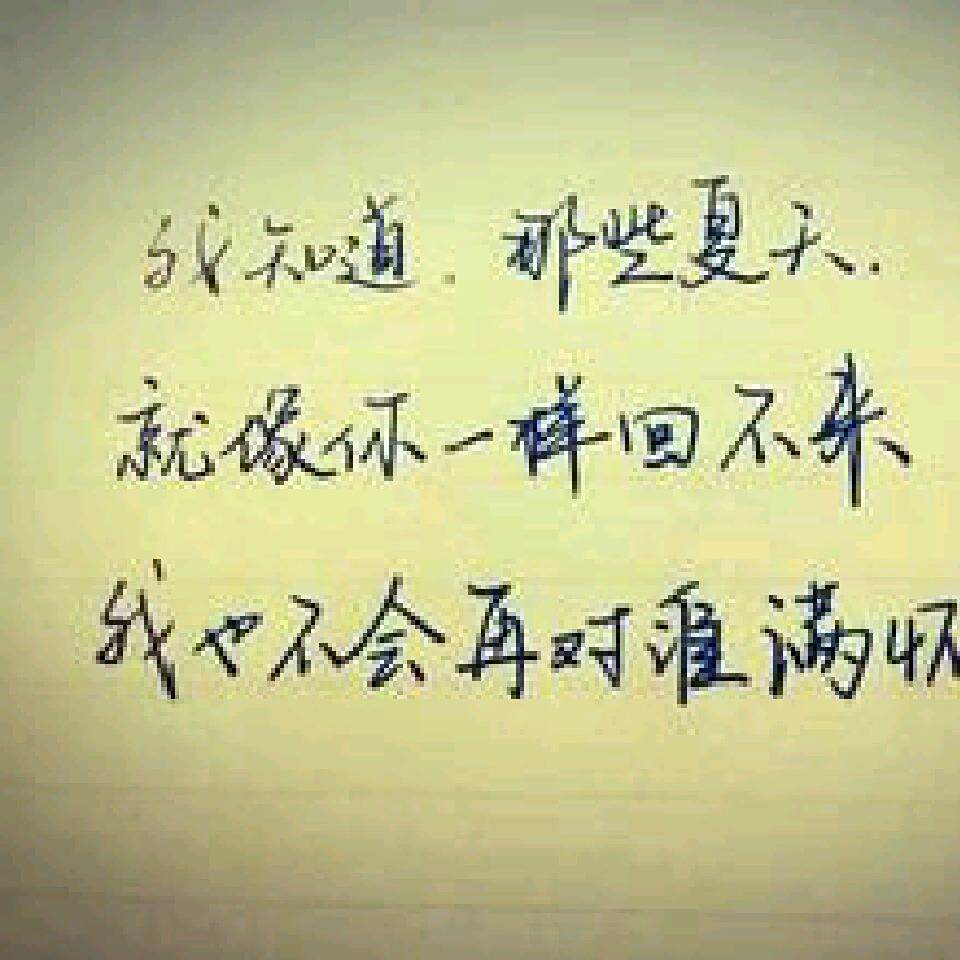 我知道.那些夏天.
就像你一样回不来
我也不会再对谁满怀